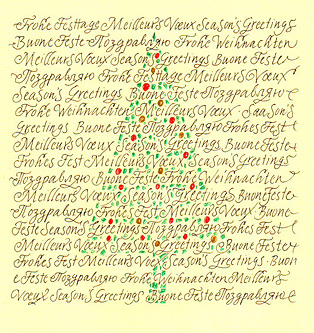 Frohe Festtage Meilleurs Vœux Season's Greetings
Buone Feste Поздравляю Frohe Weihnachten
Meilleurs Vœux Season's Greetings Buone Feste
Поздравляю Frohe Festtage Meilleurs Vœux
Season's Greetings Buone Feste Поздравляю
Frohe Weihnachten Meilleurs Vœux Saason's
Greetings Buone Feste Поздравляю Frohes Fest
Meilleurs Vœux Season's Greetings Buone Feste
Frohes Fest Meilleurs Vœux Season's Greetings
Поздравляю Buone Feste Frohe Weihnachten
Meilleurs Vœux Season's Greetings Buone Feste
Поздравляю Frohes Fest Meilleurs Vœux Buone
Feste Season's Greetings Поздравляю Frohes Fest
Meilleurs Vœux Season's Greetings Buone Feste
Frohes Fest Meilleurs Vœux Season's Greetings Buon
e Feste Поздравляю Frohe Weihnachten Meilleurs
Vœux Season's Greetings Buone Feste Поздравляю